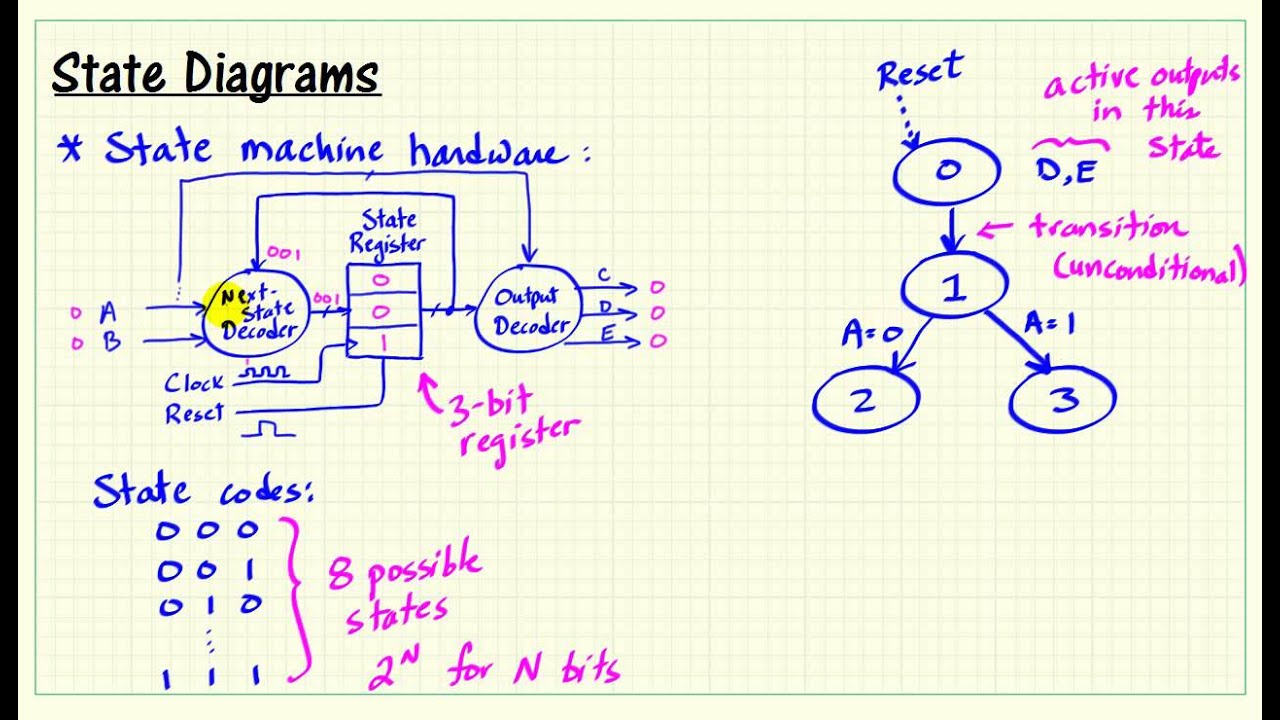 State Diagrams
* State machine hardware:
State
Register
001
0 A
0 B
Next-
State
Decoder
001
0
0
1
Output
Decoder
C 0
D 0
E 0
Clock
Reset
3-bit
register
State codes:
0 0 0
0 0 1
0 1 0
⋮
1 1 1
8 possible
states
2^N for N bits
Reset
active outputs
in this
state
0
D, E
← transition
(unconditional)
1
A=0
A=1
2
3